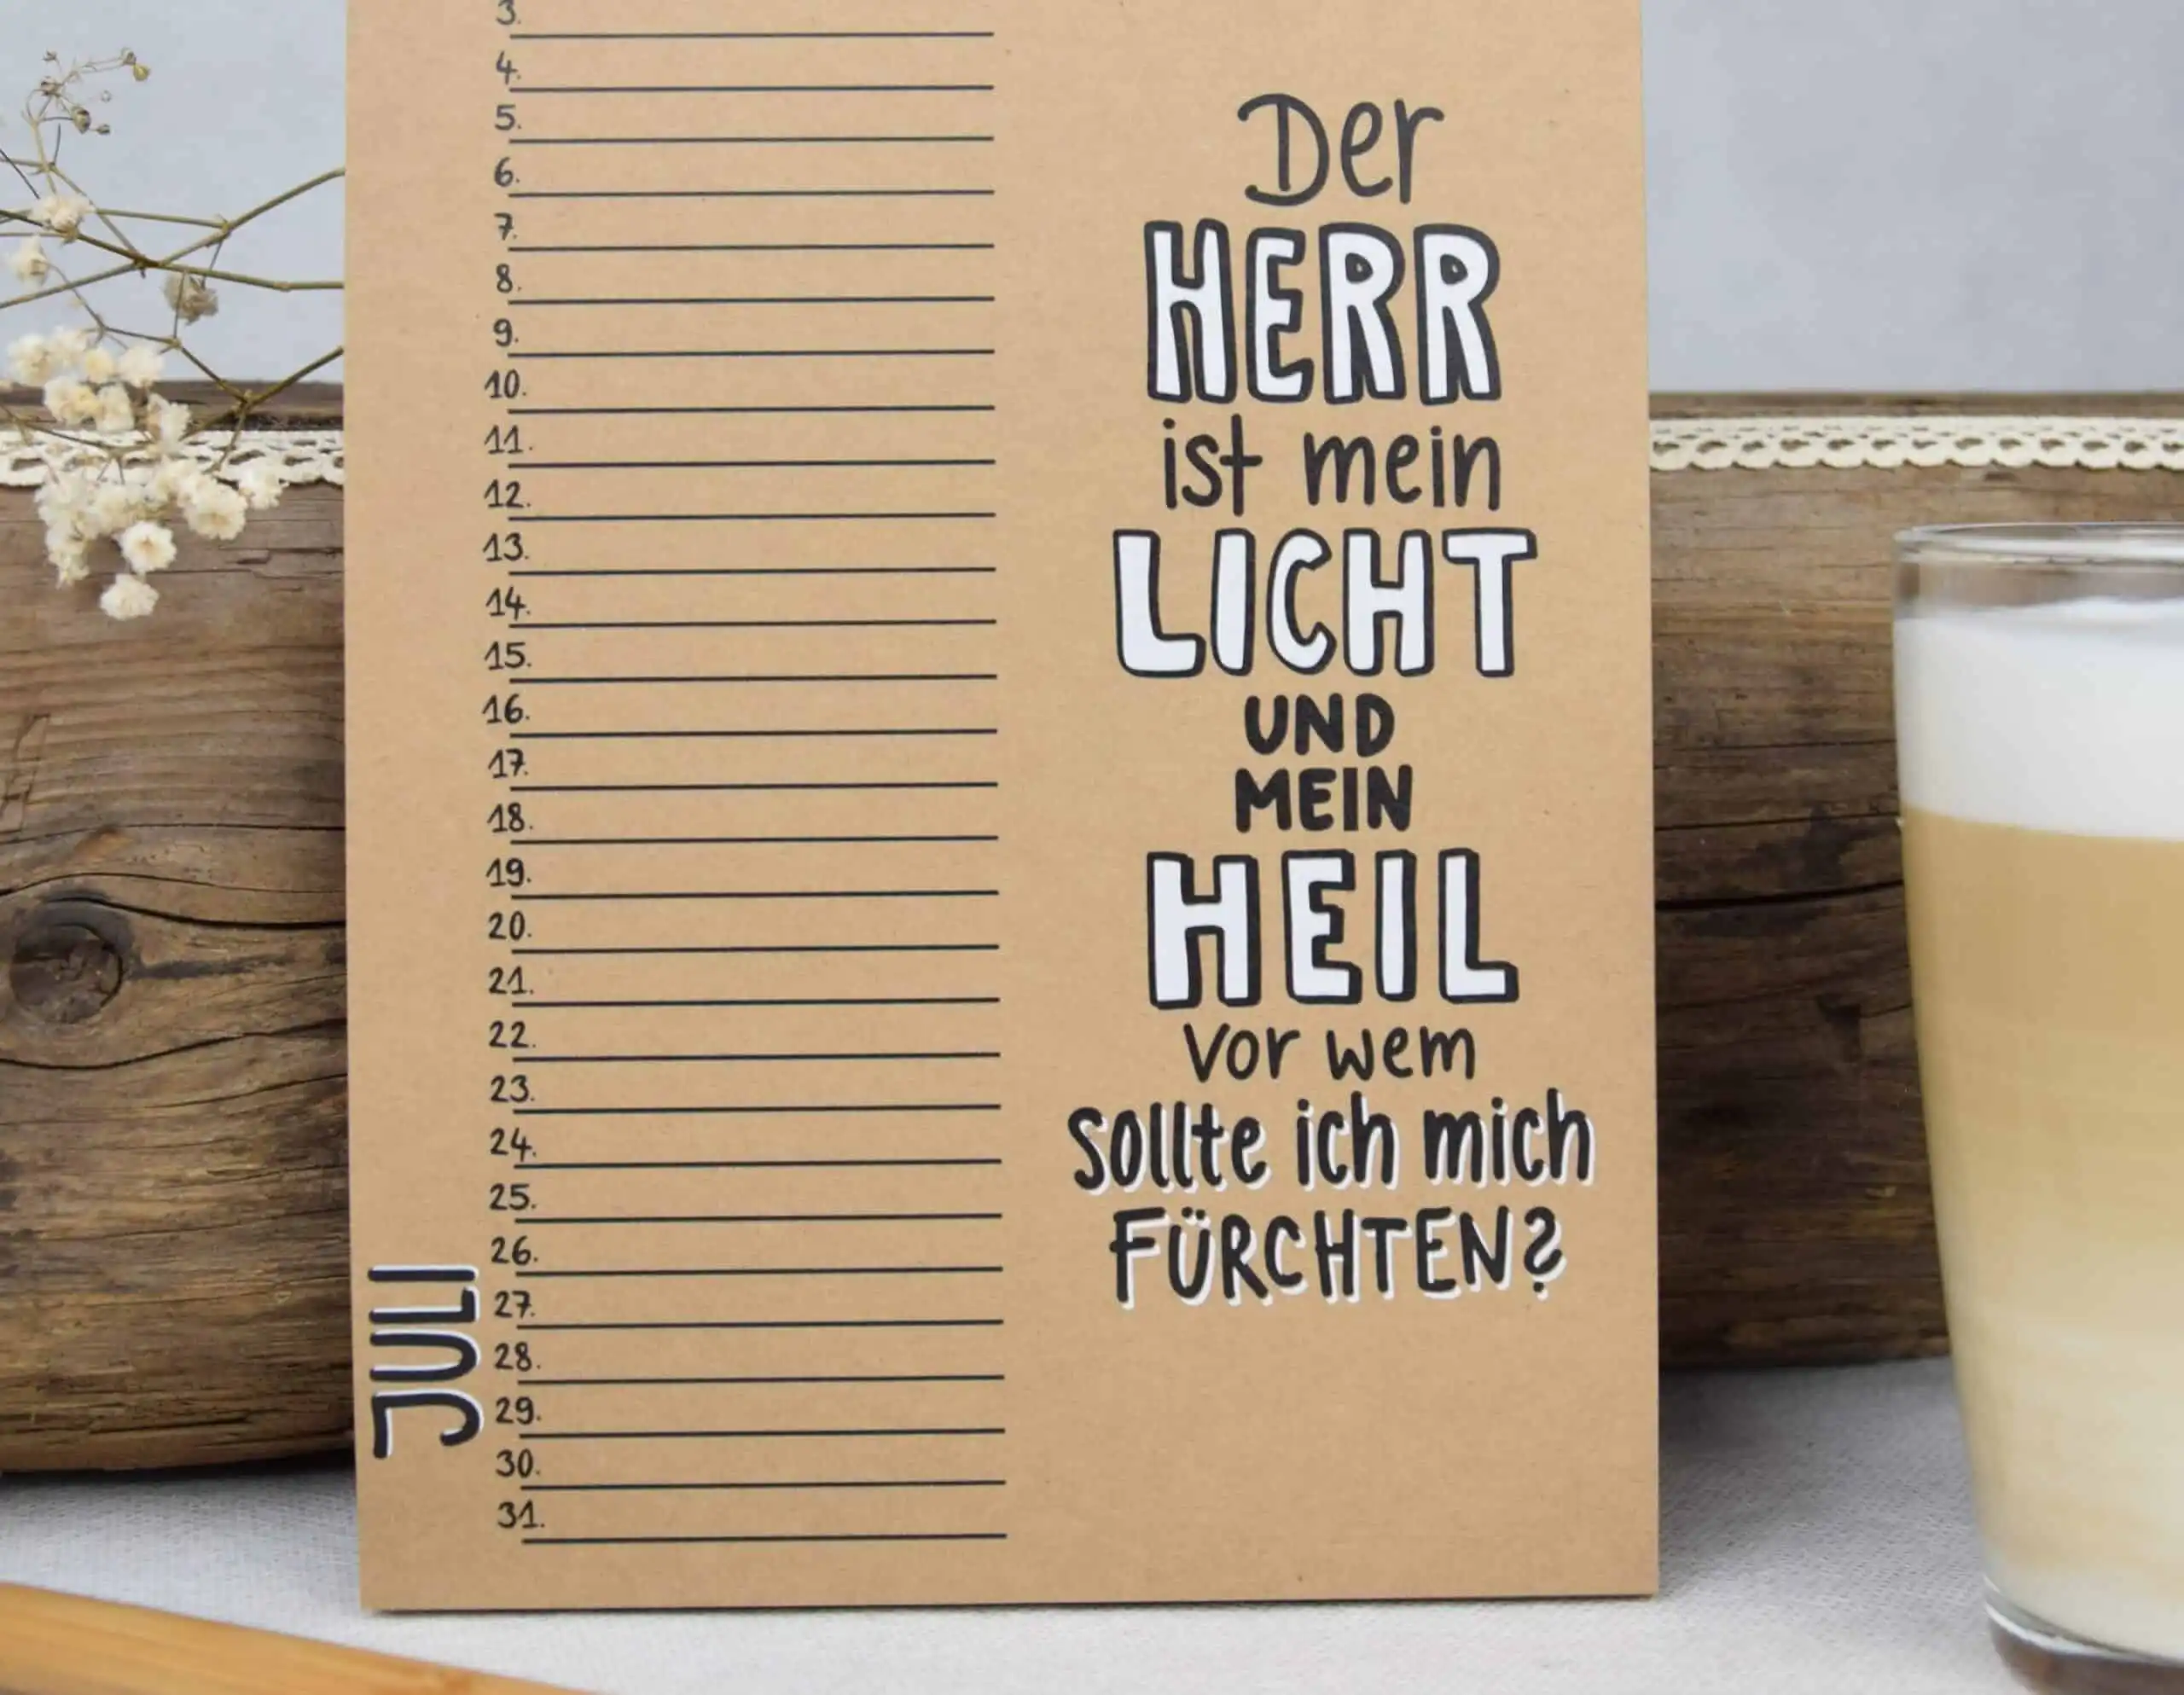 3.
4.
5.
6.
7.
8.
9.
10.
11.
12.
13.
14.
15.
16.
17.
18.
19.
20.
21.
22.
23.
24.
25.
26.
27.
28.
29.
30.
31.
JULI
Der
HERR
ist mein
LICHT
UND
MEIN
HEIL
Vor wem
sollte ich mich
FÜRCHTEN?